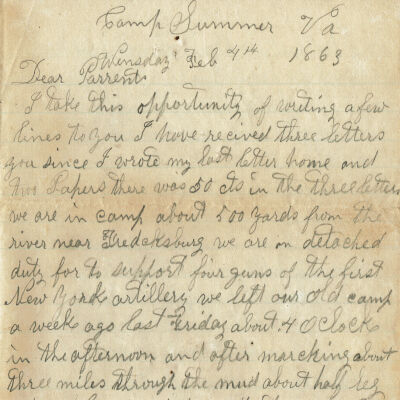 Camp Sumner Va
Wensday Feb 4th 1863
Dear Parrents
I take this opportunity of writing a few
lines to you I have recived three letters
you since I wrote my last letter home and
two Papers there was 50 cts in the three letters
we are in camp about 500 yards from the
river near Fredaksburg we are on detached
duty for to support four guns of the first
New York artillery we left our old camp
a week ago last Friday about 4 O Clock
in the afternoon and after marcking about
three miles through the mud about half leg